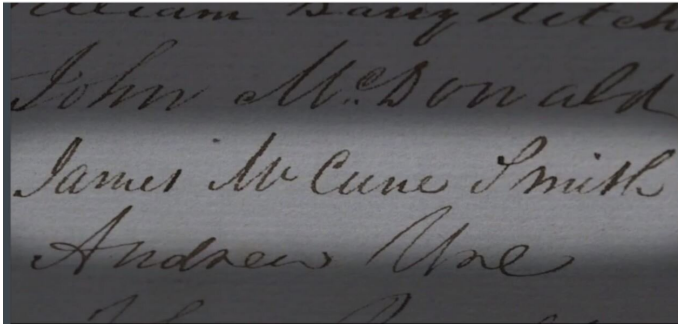 William Barry Kitch
John McDonald
James McCune Smith
Andrew Ure